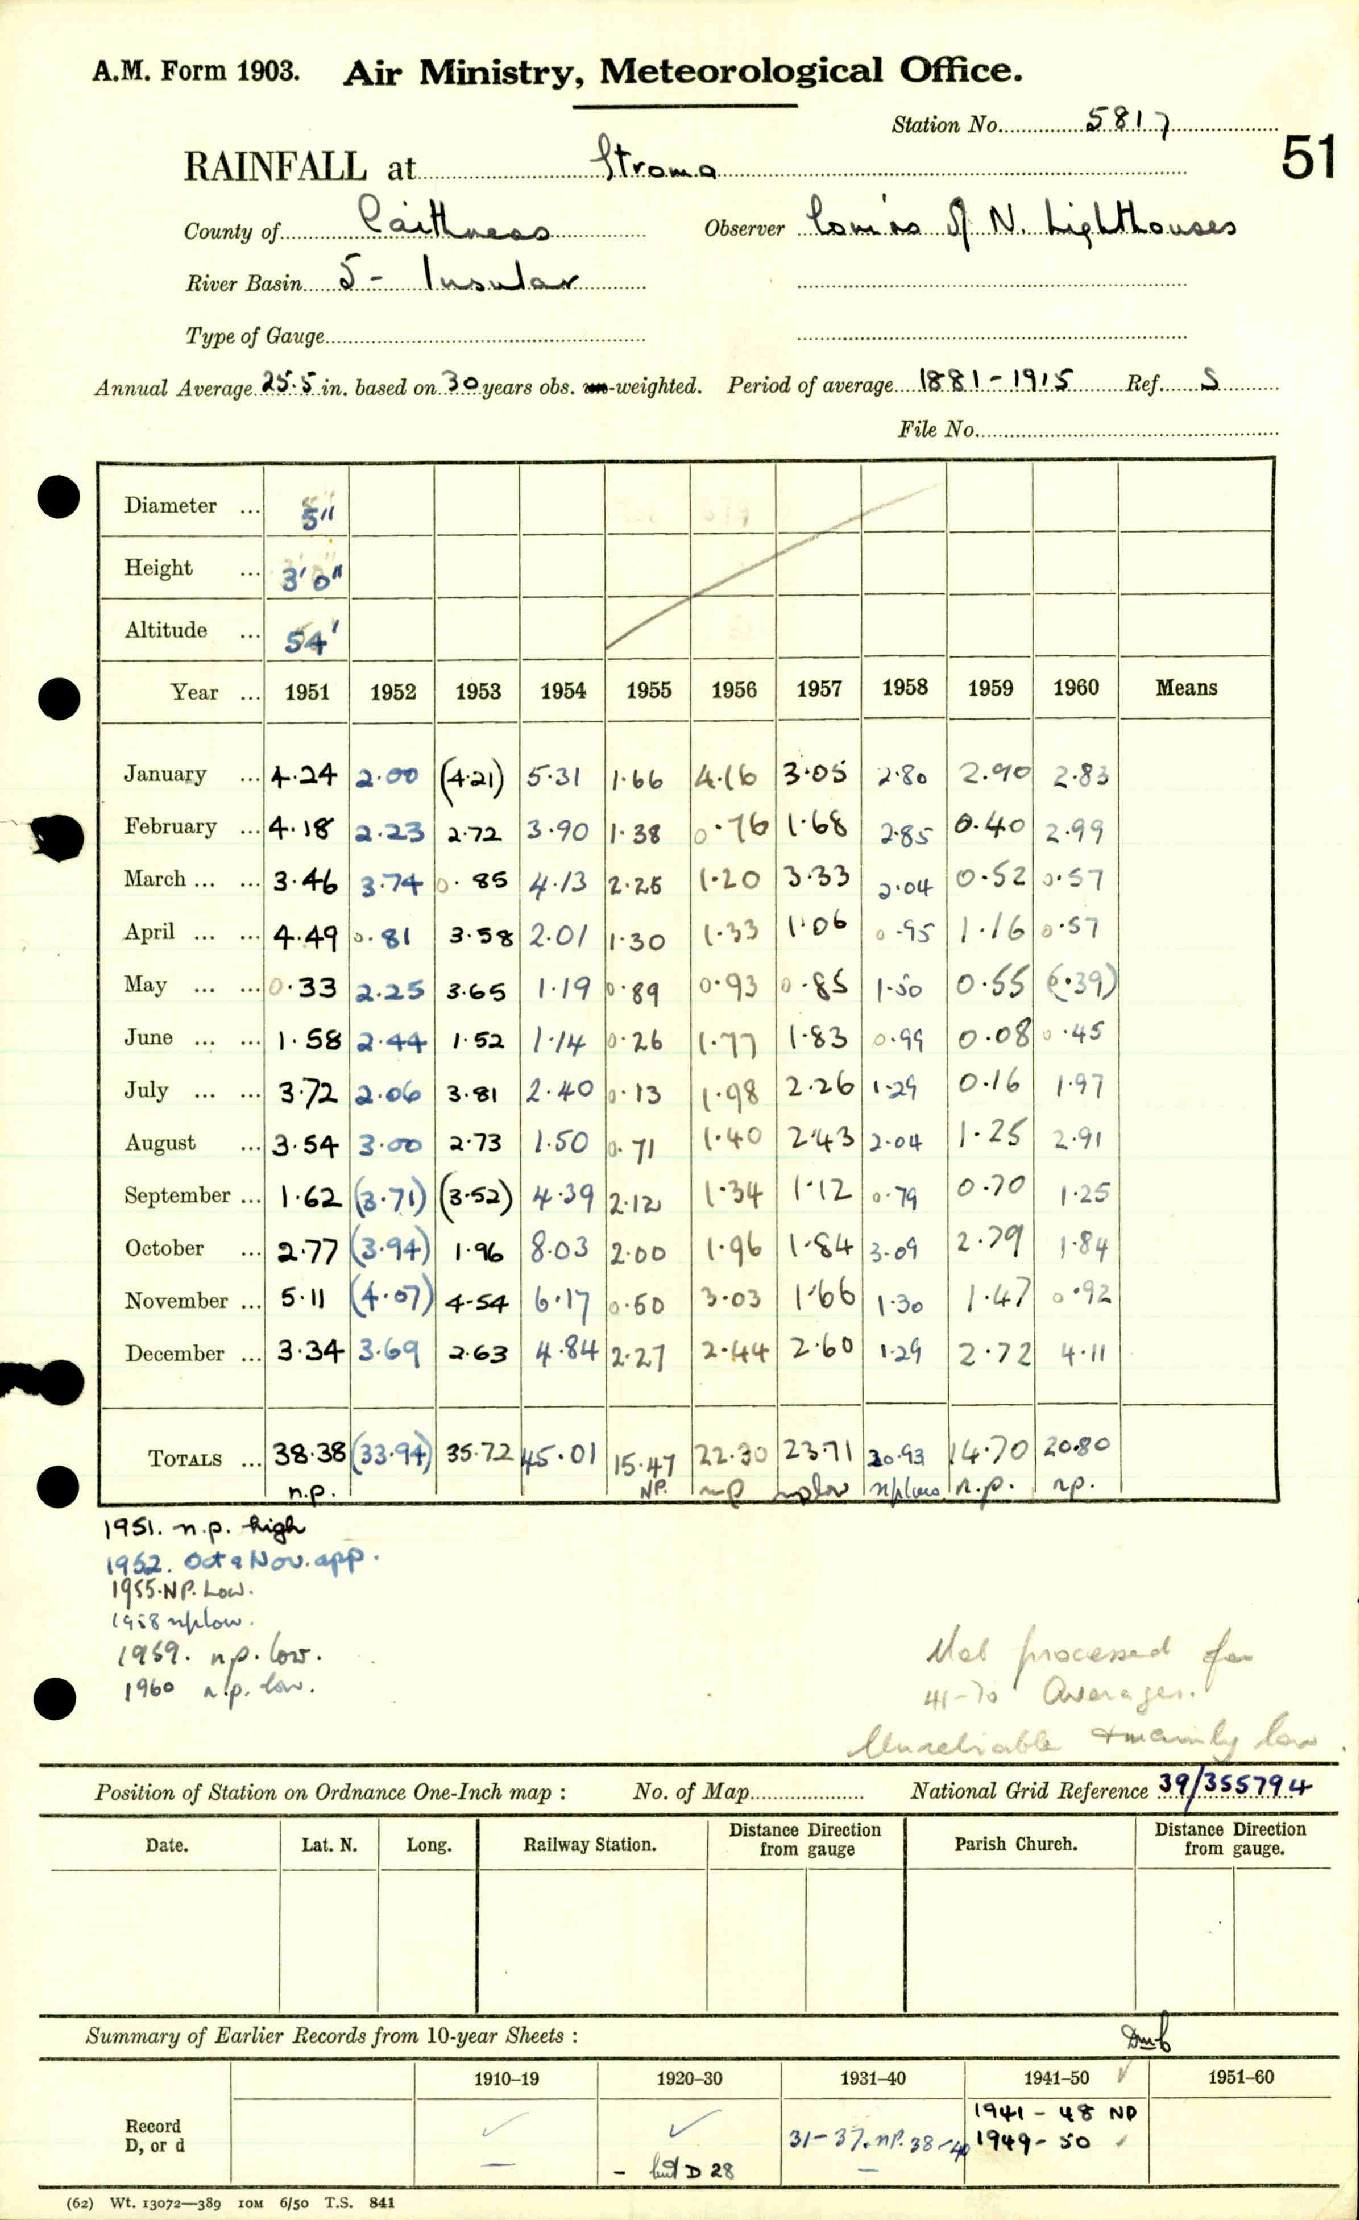 A.M. Form 1903. Air Ministry, Meteorological Office.
Station No. 5817
51
RAINFALL at Stroma
County of Caithness Observer Com'rs of N. Lighthouses
River Basin 5 - Insular
Type of Gauge
Annual Average 25.5 in. based on 30 years obs. un-weighted. Period of average 1881-1915 Ref. S
File No.
Diameter ... 5"
Height ... 3'0"
Altitude ... 54'
Year ... 1951 1952 1953 1954 1955 1956 1957 1958 1959 1960 Means
January ... 4.24 2.00 (4.21) 5.31 1.66 4.16 3.05 2.80 2.90 2.83
February ... 4.18 2.23 2.72 3.90 1.38 0.76 1.68 2.85 0.40 2.99
March ... ... 3.46 3.74 0.85 4.13 2.25 1.20 3.33 2.04 0.52 0.57
April ... ... 4.49 0.81 3.58 2.01 1.30 1.33 1.06 0.95 1.16 0.57
May ... ... 0.33 2.25 3.65 1.19 0.89 0.93 0.85 1.50 0.55 (0.39)
June ... ... 1.58 2.44 1.52 1.14 0.26 1.77 1.83 0.99 0.08 0.45
July ... ... 3.72 2.06 3.81 2.40 0.13 1.98 2.26 1.29 0.16 1.97
August ... 3.54 3.00 2.73 1.50 0.71 1.40 2.43 2.04 1.25 2.91
September ... 1.62 (3.71) (3.52) 4.39 2.12 1.34 1.12 0.79 0.70 1.25
October ... 2.77 (3.94) 1.96 8.03 2.00 1.96 1.84 3.09 2.79 1.84
November ... 5.11 (4.07) 4.54 6.17 0.50 3.03 1.66 1.30 1.47 0.92
December ... 3.34 3.69 2.63 4.84 2.27 2.44 2.60 1.29 2.72 4.11
TOTALS ... 38.38 (33.94) 35.72 45.01 15.47 22.30 23.71 20.93 14.70 20.80
n.p. NP. np np low np low n.p. np.
1951. n.p. high
1952. Oct & Nov. app.
1955. NP. Low.
1958 np low.
1959. n.p. low.
1960 n.p. low.
Not processed for
41-70 Averages.
Unreliable & mainly low.
Position of Station on Ordnance One-Inch map : No. of Map National Grid Reference 39/355794
Date. Lat. N. Long. Railway Station. Distance Direction from gauge Parish Church. Distance Direction from gauge.
Summary of Earlier Records from 10-year Sheets :
1910–19 1920–30 1931–40 1941–50 ✓ 1951–60
Record D, or d ✓ ✓ 31-37. NP. 38-40 1941-48 NP
1949-50 ✓
- but D 28
(62) Wt. 13072—389 10M 6/50 T.S. 841